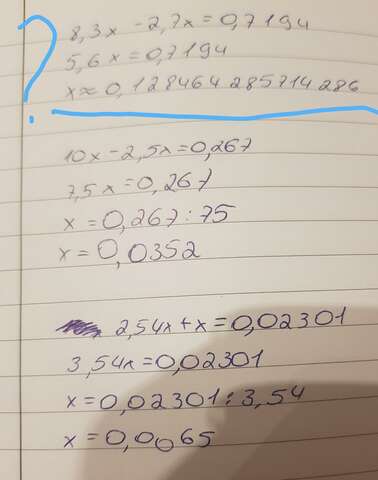 ?
8,3x - 2,7x = 0,7194
5,6x = 0,7194
x ≈ 0,128464 285714 286
10x - 2,5x = 0,267
7,5x = 0,267
x = 0,267 : 75
x = 0,0352
2,54x + x = 0,02301
3,54x = 0,02301
x = 0,02301 : 3,54
x = 0,0065